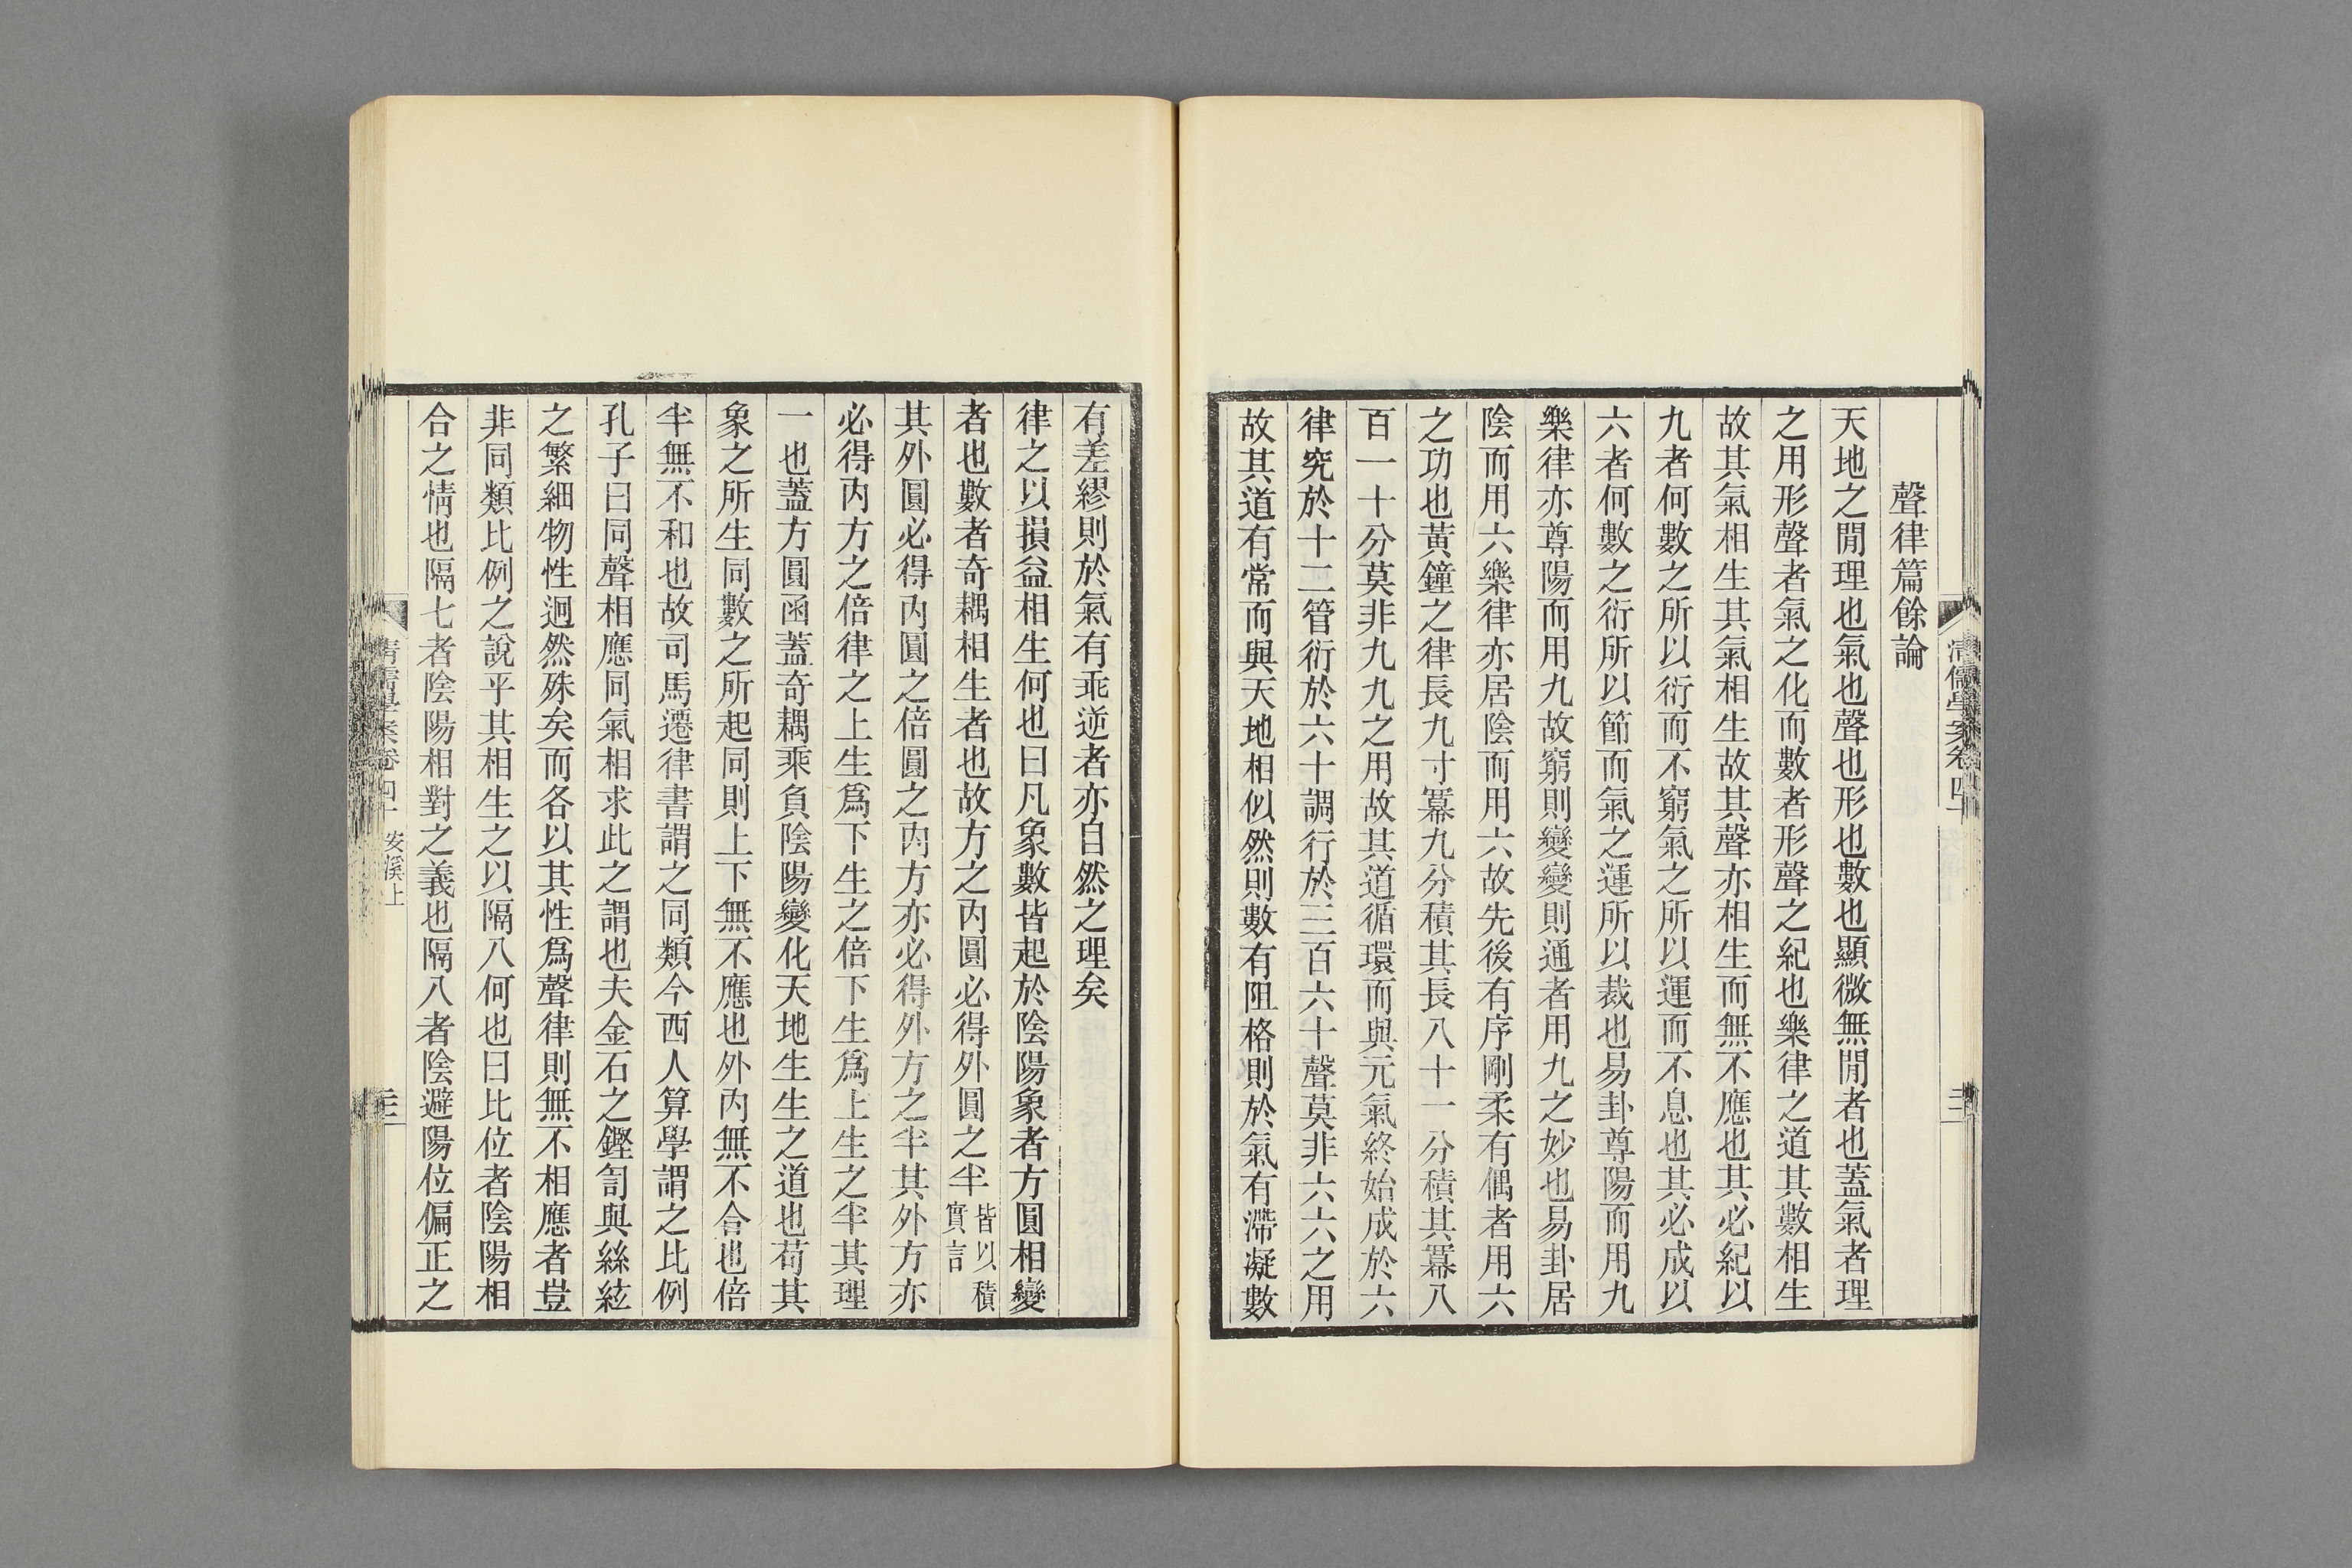 聲律篇餘論
天地之閒理也氣也聲也形也數也顯微無閒者也蓋氣者理
之用形聲者氣之化而數者形聲之紀也樂律之道其數相生
故其氣相生其氣相生故其聲亦相生而無不應也其必紀以
九者何數之所以衍而不窮氣之所以運而不息也其必成以
六者何數之衍所以節而氣之運所以裁也易卦尊陽而用九
樂律亦尊陽而用九故窮則變變則通者用九之妙也易卦居
陰而用六樂律亦居陰而用六故先後有序剛柔有偶者用六
之功也黃鐘之律長九寸冪九分積其長八十一分積其冪八
百一十分莫非九九之用故其道循環而與元氣終始成於六
律究於十二管衍於六十調行於三百六十聲莫非六六之用
故其道有常而與天地相似然則數有阻格則於氣有滯凝數
有差繆則於氣有乖逆者亦自然之理矣
律之以損益相生何也曰凡象數皆起於陰陽象者方圓相變
者也數者奇耦相生者也故方之內圓必得外圓之半皆以積
實言
其外圓必得內圓之倍圓之內方亦必得外方之半其外方亦
必得內方之倍律之上生爲下生之倍下生爲上生之半其理
一也蓋方圓函蓋奇耦乘負陰陽變化天地生生之道也苟其
象之所生同數之所起同則上下無不應也外內無不合也倍
半無不和也故司馬遷律書謂之同類今西人算學謂之比例
孔子曰同聲相應同氣相求此之謂也夫金石之鏗訇與絲絃
之繁細物性迥然殊矣而各以其性爲聲律則無不相應者豈
非同類比例之說乎其相生之以隔八何也曰比位者陰陽相
合之情也隔七者陰陽相對之義也隔八者陰避陽位偏正之
清儒學案卷四十
安溪上